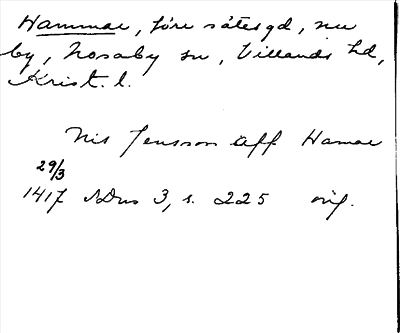 Hammar, före sätesgd, nu
by, Nosaby sn, Villands hd,
Krist. l.
Nis Jensson aff Hamar
29/3
1417 SDns 3, s. 225 orig.